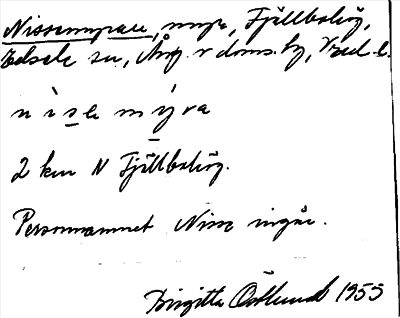 Nissemyran, myr, Fjällbohög,
Edsele sn, Ång. v doms. hg, Vred. l.
n i s e m y r a
2 km N Fjällbohög.
Personnamnet Nisse ingår.
Birgitta Östlund 1953